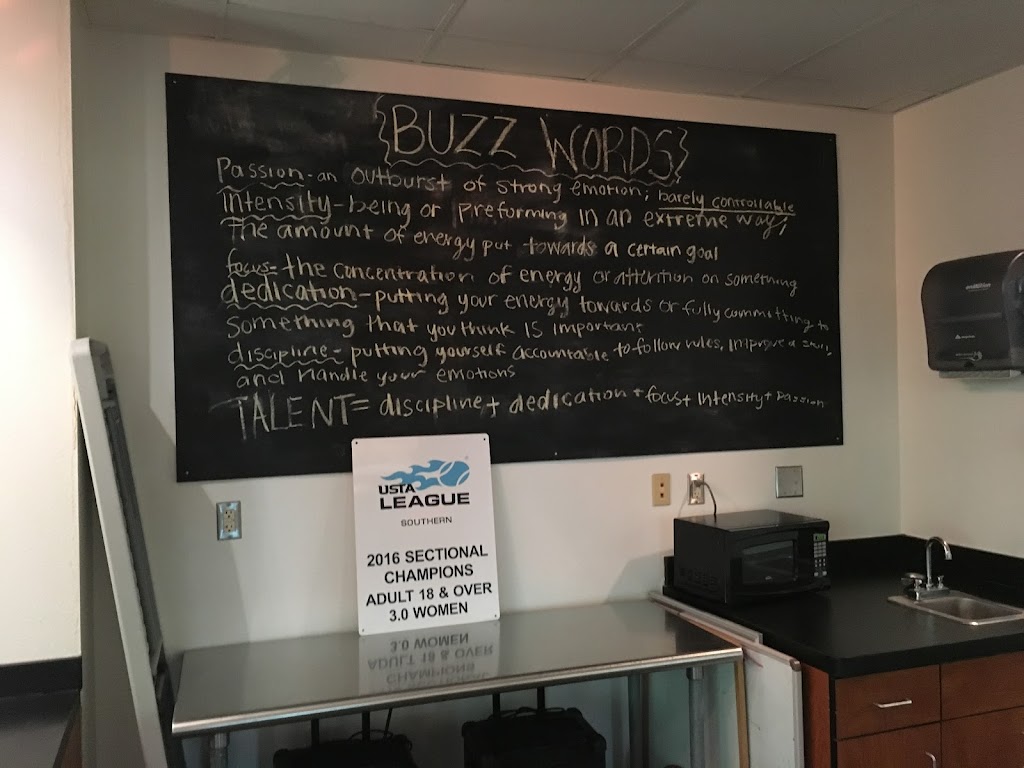 {BUZZ WORDS}
Passion - an outburst of strong emotion; barely controllable
Intensity - being or preforming in an extreme way;
The amount of energy put towards a certain goal
focus = the concentration of energy or attention on something
dedication - putting your energy towards or fully committing to
something that you think is important
discipline - putting yourself accountable to follow rules, improve a skill,
and handle your emotions
TALENT = discipline + dedication + focus + intensity + passion
USTA
LEAGUE
SOUTHERN
2016 SECTIONAL
CHAMPIONS
ADULT 18 & OVER
3.0 WOMEN